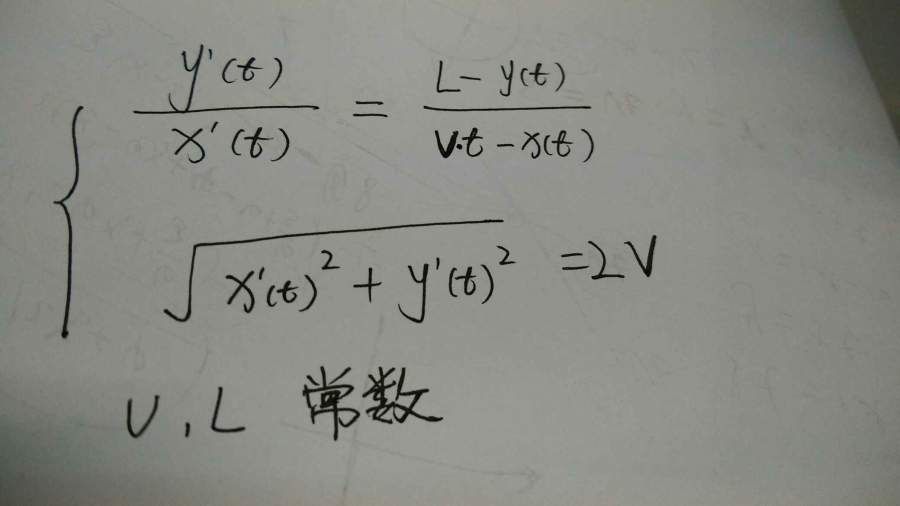 y'(t) / x'(t) = L - y(t) / V·t - x(t)
√ x'(t)² + y'(t)² = 2V
V, L 常数